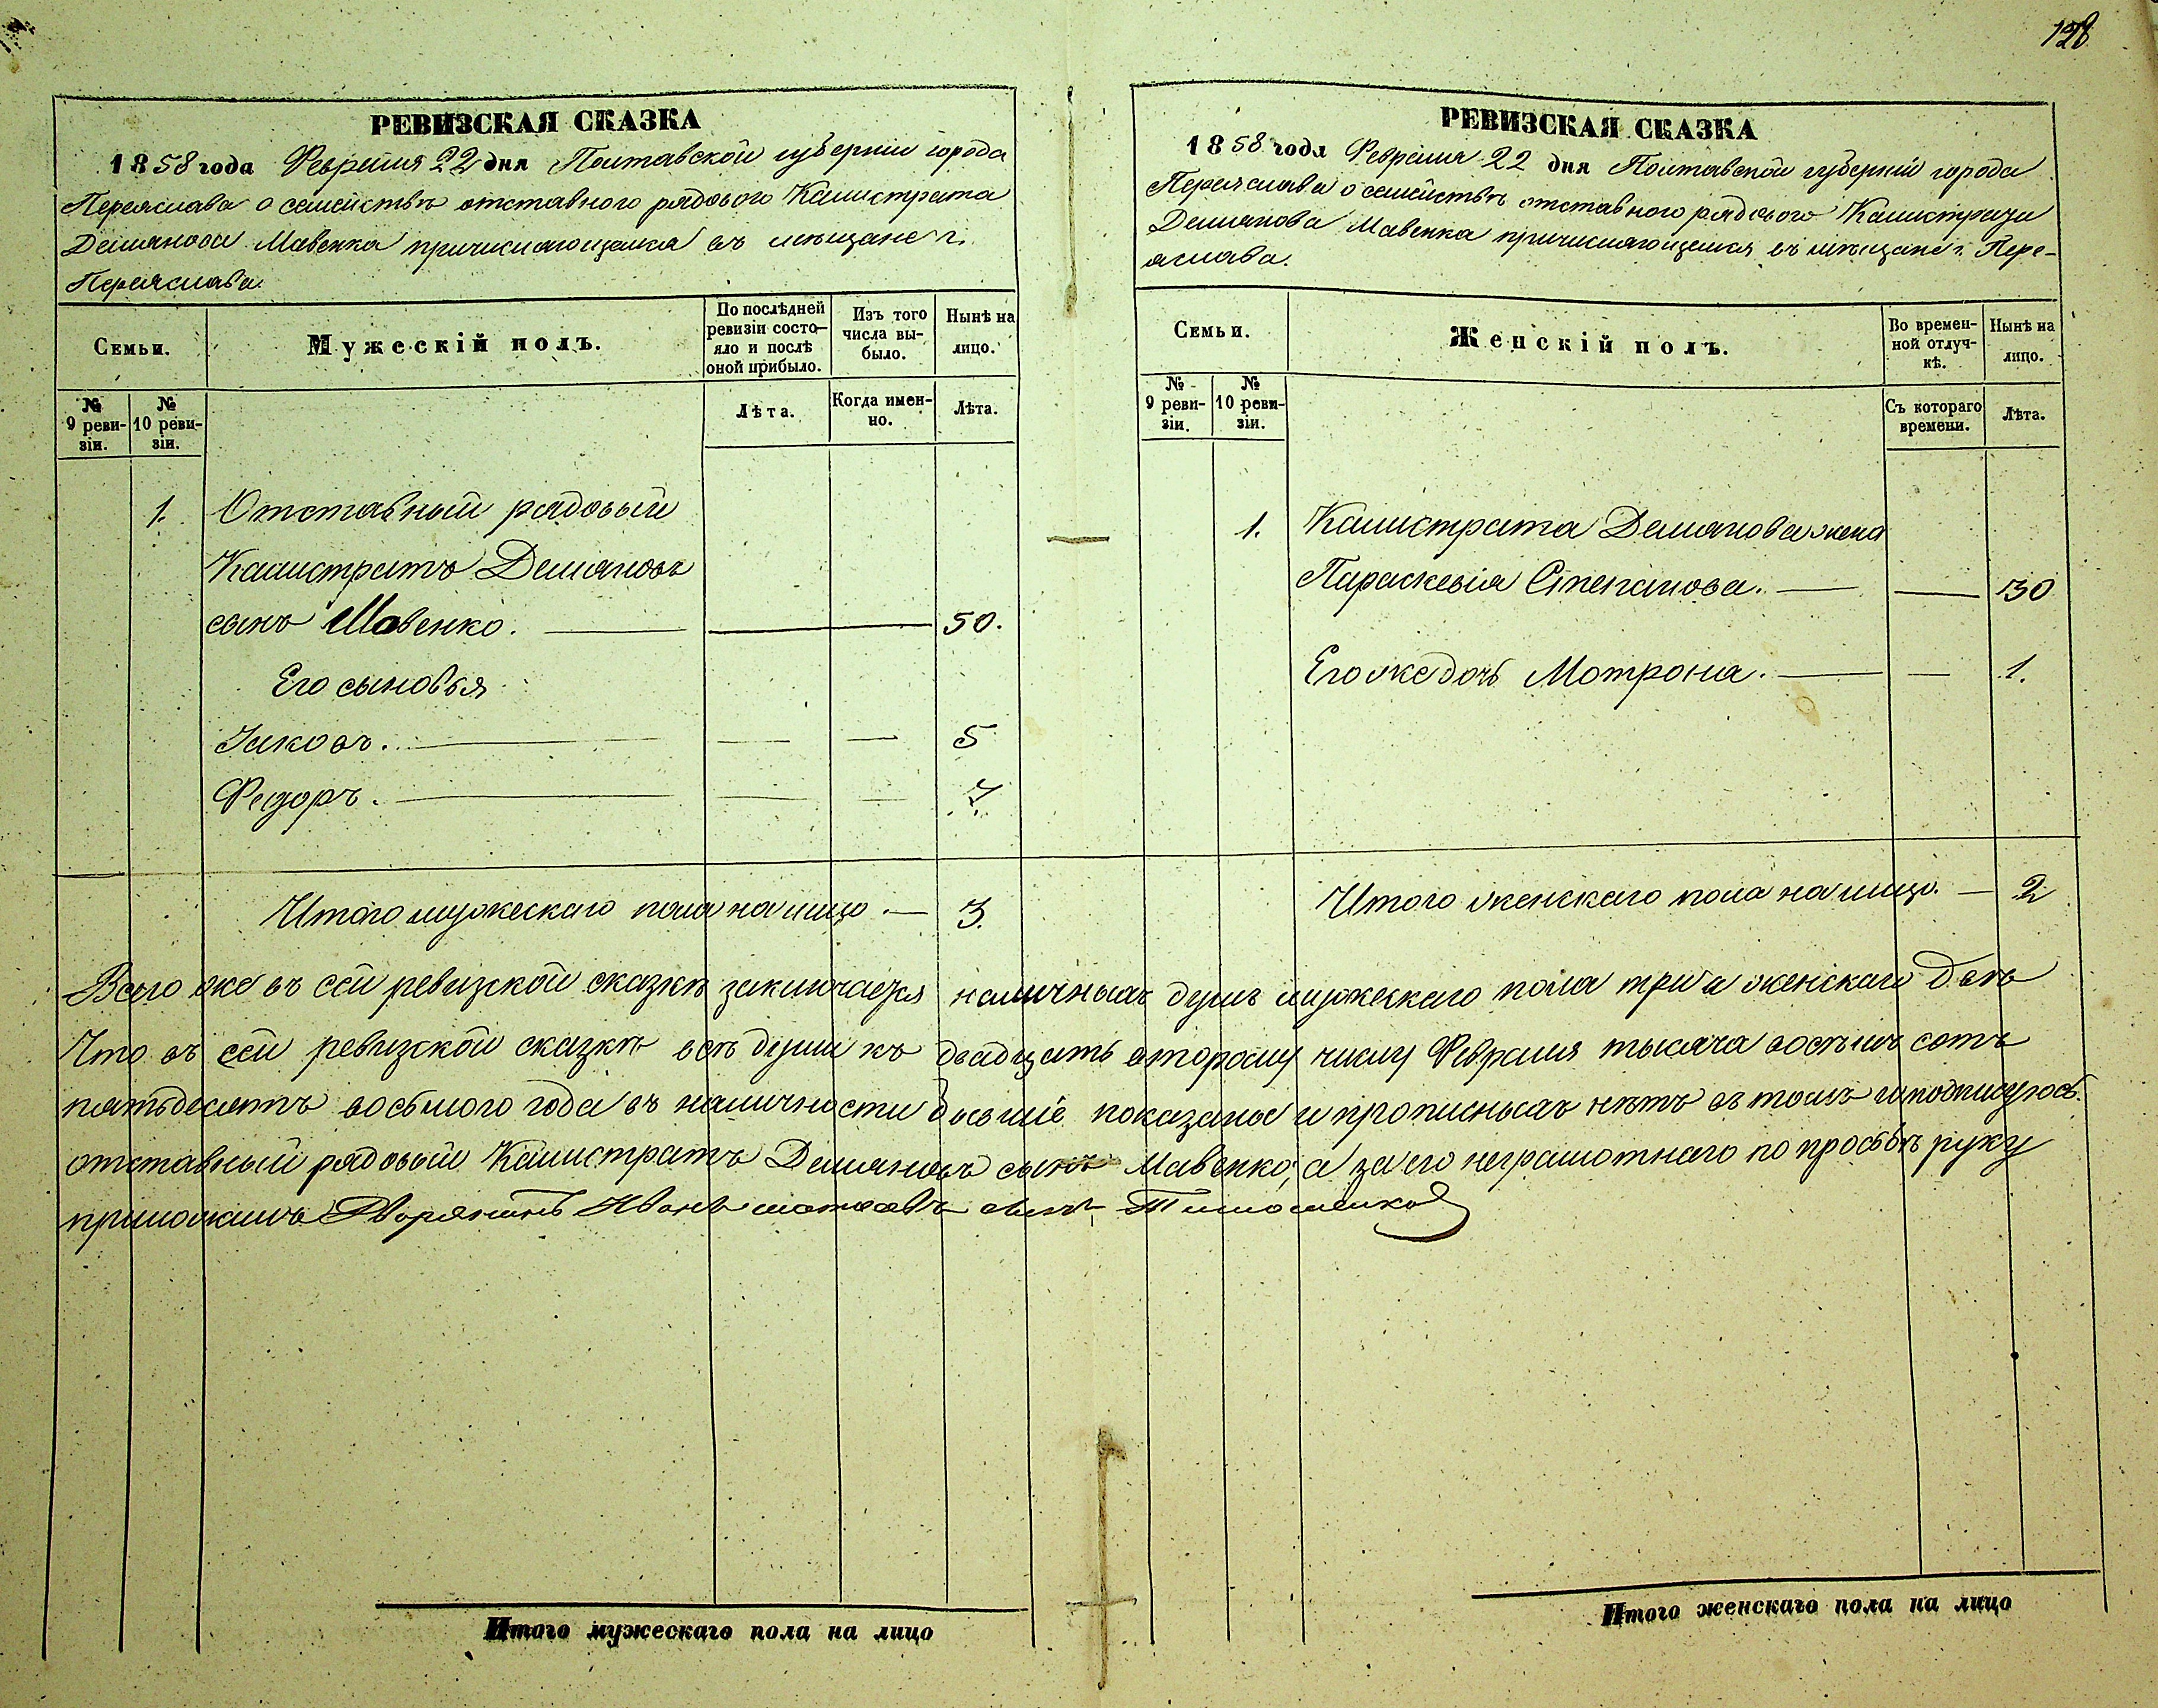 128
РЕВИЗСКАЯ СКАЗКА
1858 года Февраля 22 дня Полтавской губерніи города
Переяслава о семействѣ отставного рядового Калистрата
Демянова Мавенка причисляющемся въ мѣщане г.
Переяслава.
Семьи.
Мужескій полъ.
По послѣдней ревизіи состояло и послѣ оной прибыло.
Изъ того числа выбыло.
Нынѣ на лицо.
№ 9 ревизіи.
№ 10 ревизіи.
Лѣта.
Когда именно.
Лѣта.
1. Отставный рядовый
Калистратъ Демяновъ
сынъ Мавенко. 50.
Его сыновья
Іаковъ. 5
Федоръ.
Итого мужескаго пола на лицо 3.
РЕВИЗСКАЯ СКАЗКА
1858 года Февраля 22 дня Полтавской губерніи города
Переяслава о семействѣ отставного рядового Калистрата
Демянова Мавенка причисляющемся въ мѣщане г. Пере-
яслава.
Семьи.
Женскій полъ.
Во временной отлучкѣ.
Нынѣ на лицо.
№ 9 ревизіи.
№ 10 ревизіи.
Съ котораго времени.
Лѣта.
1. Калистрата Демянова жена
Параскевія Степанова. 30
Его же дочь Мотрона. 1.
Итого женскаго пола на лицо. 2
Всего же въ сей ревизкой сказкѣ заключается наличныхъ душъ мужескаго пола три а женскаго двѣ
Что въ сей ревизской сказкѣ всѣ души къ двадцать второму числу Февраля тысяча восемь сотъ
пятьдесятъ восьмого года въ наличности бывшіе показаны и прописныхъ нѣтъ въ томъ и подписуюсь.
отставный рядовый Калистратъ Демяновъ сынъ Мавенко, а за его неграмотнаго по прозьбѣ руку
приложилъ Дворянинъ Иванъ сынъ Тимошенко
Итого мужескаго пола на лицо
Итого женскаго пола на лицо